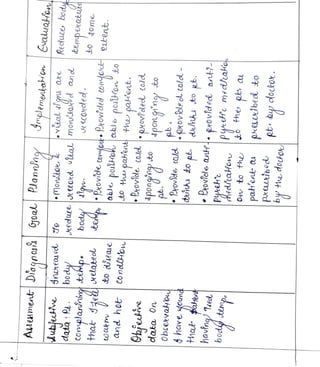 Assessment
Subjective
data: Pt.
complaining
that I feel
warm
and hot
Objective
data On
observation
I have found
that patient
having ↑sed
body temp.
Diagnosis
Increased
body
temp.
related
to disease
condition
Goal
To
reduce
body
temp.
Planning
• Monitor &
record vital
sign
• Provide comfort-
able position
to the patient
• Provide cold
sponging to
pt.
• Provide cold
drinks to pt.
• Provide anti-
pyretic
Medication
on to the
patient as
prescribed
by the doctor
Implementation
• vital signs are
monitored and
recorded.
• Provided comfort-
able position to
the patient.
• provided cold
sponging to
pt.
• provided cold-
drinks to pt.
• provided anti-
pyretic medication
to the pt. as
prescribed to
pt. by doctor.
Evaluation
Reduce body
temperature
to some
extent.